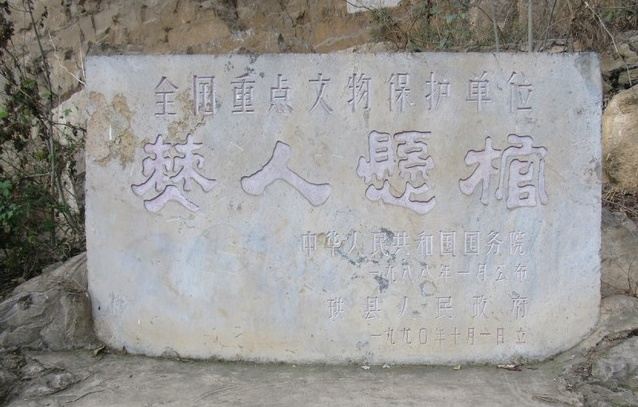 全国重点文物保护单位
僰人懸棺
中华人民共和国国务院
一九八八年一月公布
珙县人民政府
一九九〇年十月一日立